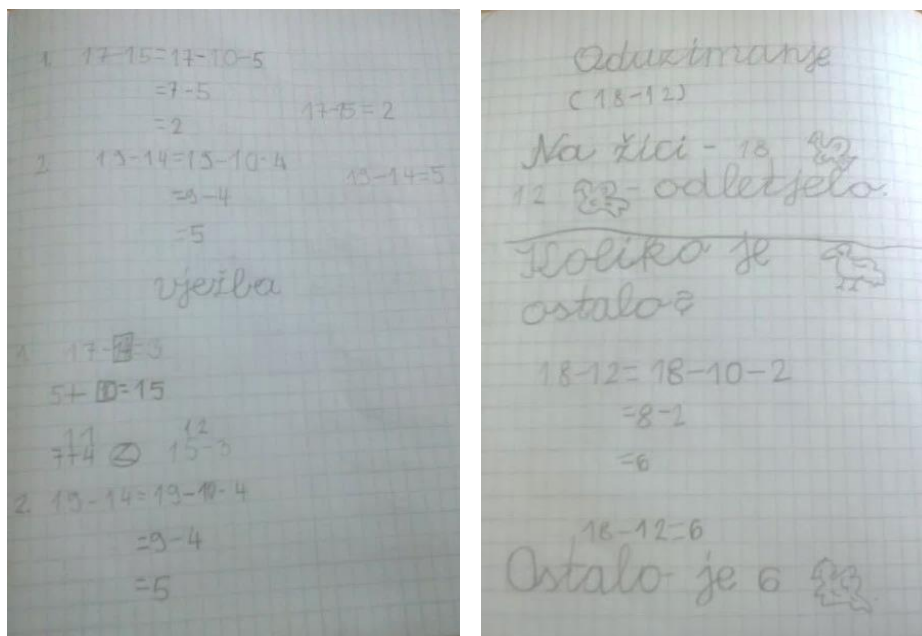 1. 17-15=17-10-5
=7-5
=2
17-15=2
2. 19-14=19-10-4
=9-4
=5
19-14=5
vježba
1. 17-14=3
5+10=15
11 12
7+4 < 15-3
2. 19-14=19-10-4
=9-4
=5
Oduzimanje
(18-12)
Na žici - 18
12 - odletjelo.
Koliko je
ostalo?
18-12=18-10-2
=8-2
=6
18-12=6
Ostalo je 6